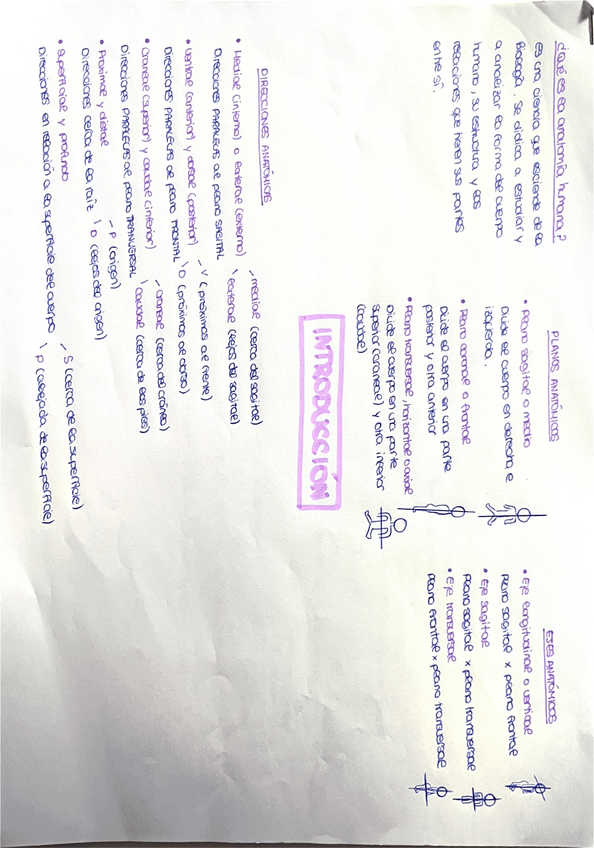 ¿Qué es la anatomía humana?
Es una ciencia que esciende de la
Biología. Se dedica a estudiar y
a analizar la forma del cuerpo
humano, su estructura y las
relaciones que tienen sus partes
entre sí.
PLANOS ANATÓMICOS
• Plano sagital o medio
Divide el cuerpo en derecha e
izquierda.
• Plano coronal o frontal
Divide el cuerpo en una parte
posterior y otra anterior
• Plano transversal, horizontal o axial
Divide el cuerpo en una parte
superior (craneal) y otra inferior
(caudal)
EJES ANATÓMICOS
• Eje longitudinal o vertical
Plano sagital x plano frontal
• Eje sagital
Plano sagital x plano transversal
• Eje transversal
Plano frontal x plano transversal
INTRODUCCIÓN
DIRECCIONES ANATÓMICAS
• Medial (interno) o lateral (externo)
Direcciones PARALELAS al plano SAGITAL
medial (cerca del sagital)
lateral (lejos del sagital)
• Ventral (anterior) y dorsal (posterior)
Direcciones PARALELAS al plano FRONTAL
V (próximas al vientre)
D (próximas al dorso)
• Craneal (superior) y caudal (inferior)
Direcciones PARALELAS al plano TRANSVERSAL
craneal (cerca del cráneo)
caudal (cerca de los pies)
• Proximal y distal
Direcciones cerca de la raíz
P (origen)
D (lejos del origen)
• Superficial y profundo
Direcciones en relación a la superficie del cuerpo
S (cerca de la superficie)
P (alejada de la superficie)